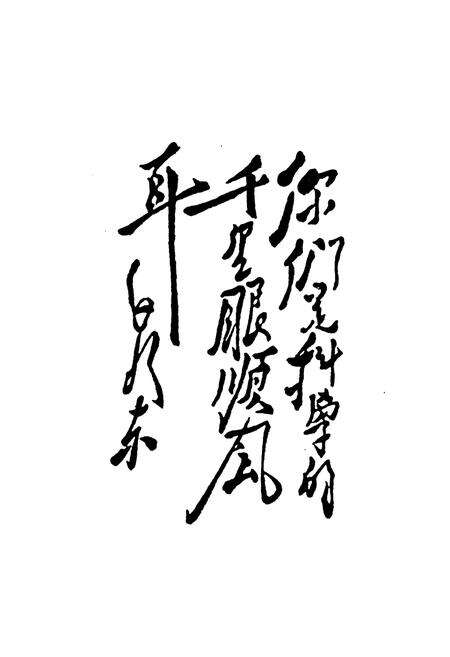 你们是科學的
千里眼順風
耳 毛泽东